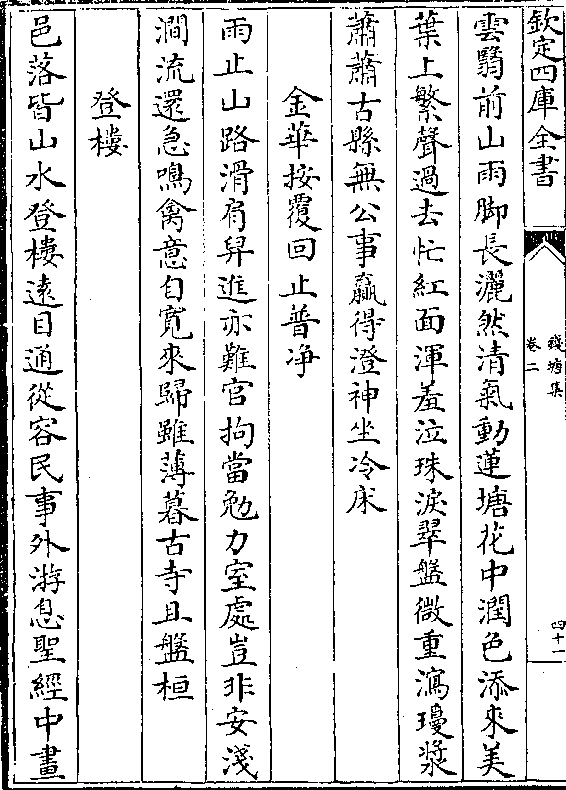 欽定四庫全書
錢塘集
卷二
四十一
雲翳前山雨脚長灑然清氣動蓮塘花中潤色添來美
葉上繁聲過去忙紅面渾羞泣珠淚翠盤微重瀉瓊漿
蕭蕭古縣無公事贏得澄神坐冷床
金華按覆回止普净
雨止山路滑肩舁進亦難官拘當勉力室處豈非安淺
澗流還急鳴禽意自寬來歸雖薄暮古寺且盤桓
登樓
邑落皆山水登樓遠目通從容民事外游息聖經中畫